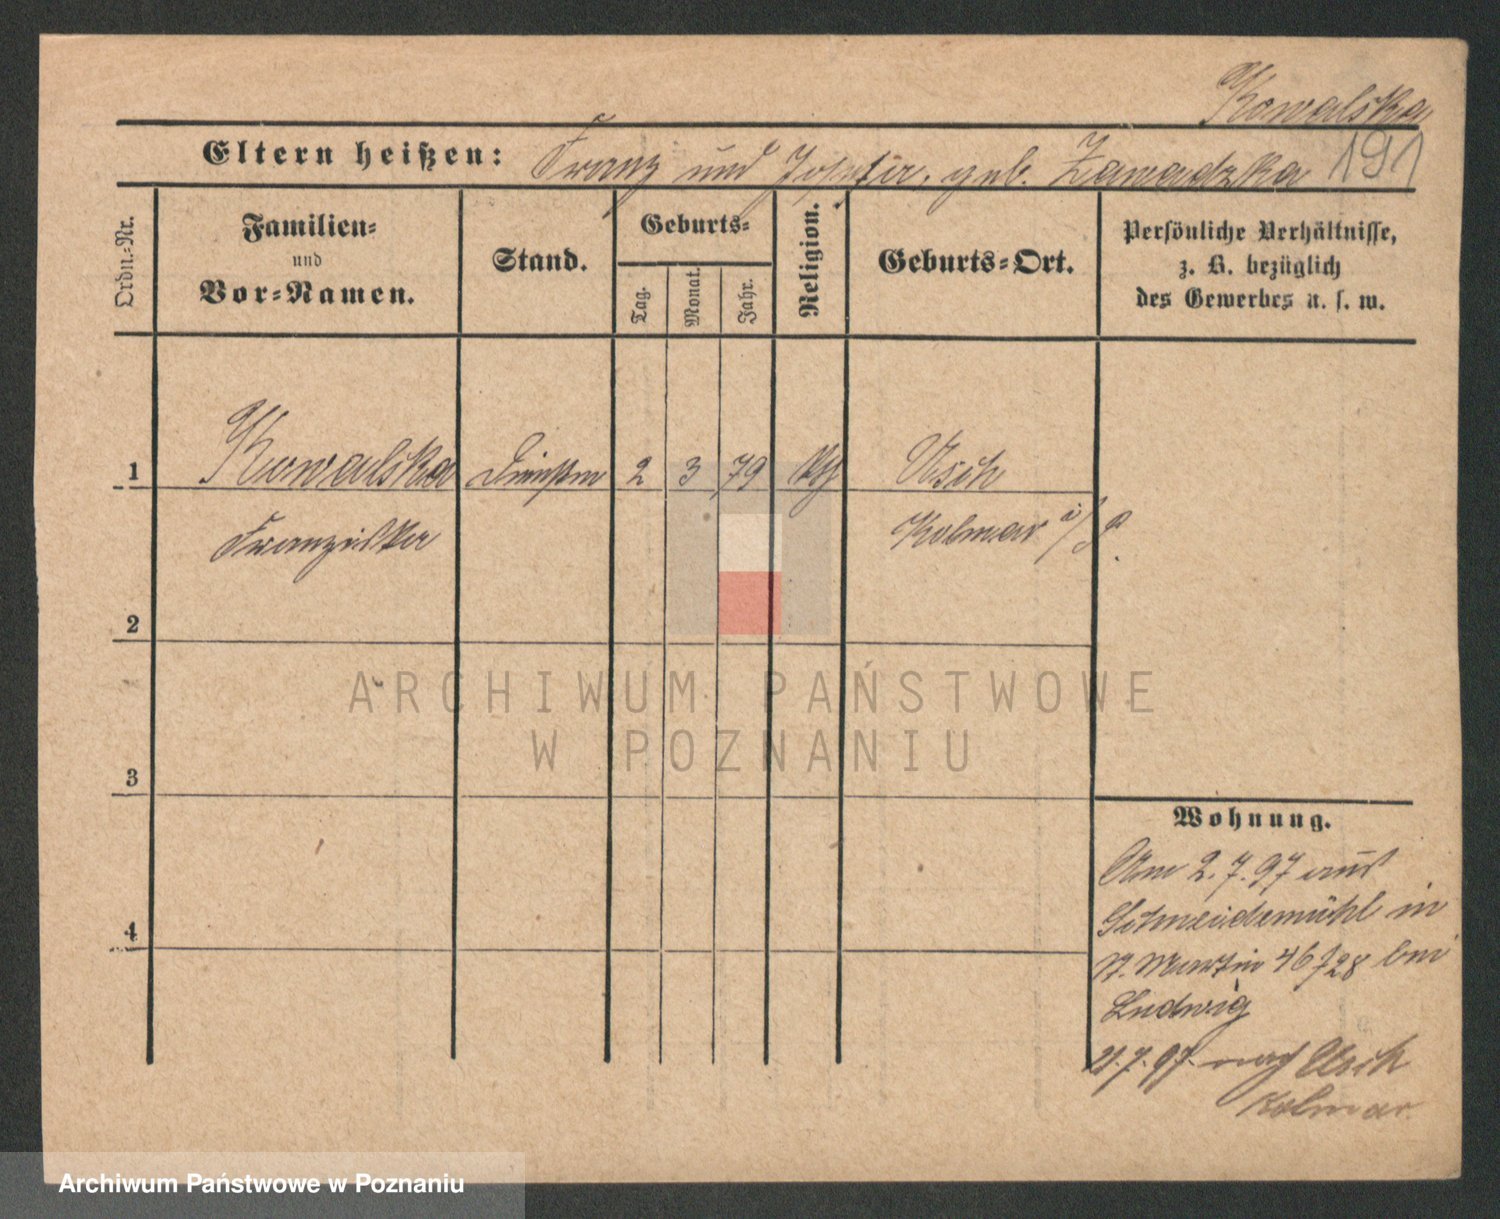 Kowalska
191
Eltern heißen: Franz und Josefa, geb. Zawadzka
Ordn.-Nr.
Familien-
und
Vor-Namen.
Stand.
Geburts-
Tag.
Monat.
Jahr.
Religion.
Geburts-Ort.
Persönliche Verhältnisse,
z. B. bezüglich
des Gewerbes u. s. w.
1 Kowalska 2 3 79 Usch
Franziska Kolmar i/P.
2
3
4
Wohnung.
Am 2.7.97 aus
Schneidemühl in
St. Martin 46/28 bei
Ludwig
21.7.97 nach Usch
Kolmar.
ARCHIWUM PAŃSTWOWE
W POZNANIU
Archiwum Państwowe w Poznaniu